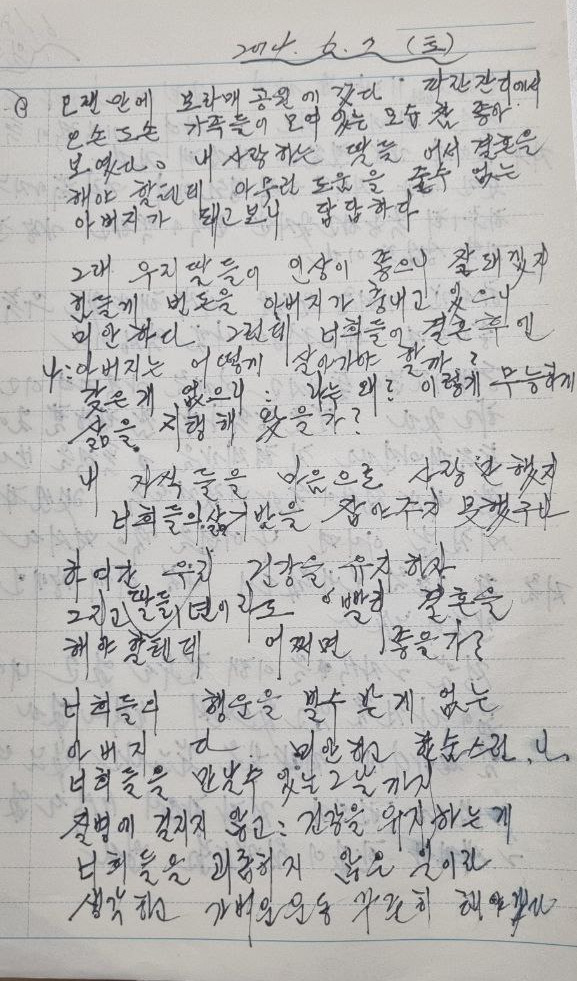 2014. 6. 7 (토)
오랜만에 보라매 공원에 갔다. 파란잔디에서
오손도손 가족들이 모여 있는 모습 참 좋아
보였다. 내 사랑하는 딸들 어서 결혼을
해야 할텐데 아무런 도움을 줄수 없는
아버지가 돼고보니 답답하다
그래 우리딸들이 인상이 좋으니 잘돼겠지
힘들게 번돈을 아버지가 축내고 있으니
미안하다 그런데 너희들이 결혼후엔
나: 아버지는 어떻게 살아가야 할까?
찾은게 없으니: 나는 왜? 이렇게 무능하게
삶을 지행해 왔을가?
내 자식들을 마음으로 사랑만 했지
너희들의 삶에 받을 잡아주지 못했구나
하여간 우리 건강을 유지하자
그리고 딸들 년이라도 빨리 결혼을
해야할텐데 어쩌면 좋을가?
너희들의 행운을 빌수 밖게 없는
아버지다 미안하고 한숨스럽
너희들을 만날수 있는 그날까지
질병에 걸리지 않고: 건강을 유지하는게
너희들을 괴롭히지 않은 일이라
생각하고 가벼운운동 꾸준히 해야겠다